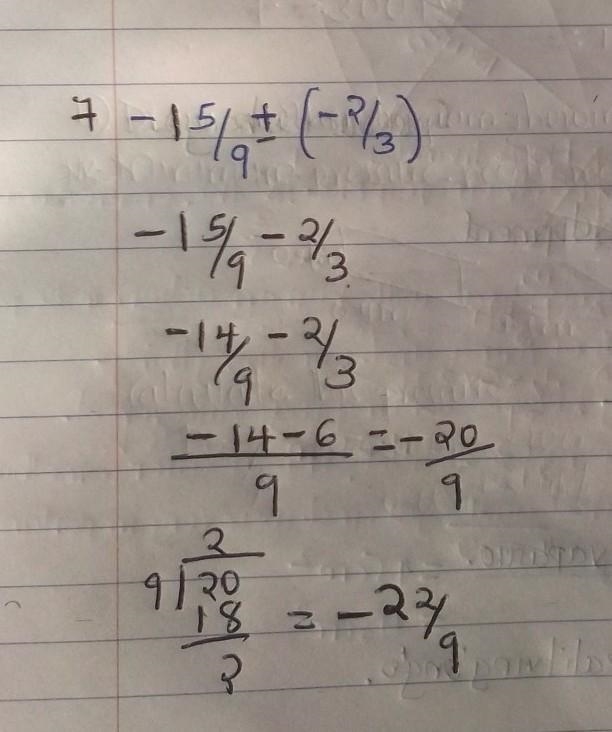 7 -1 5/9 + (-2/3)
-1 5/9 - 2/3
-14/9 - 2/3
-14-6/9 = -20/9
2
9 20
18 = -2 2/9
2